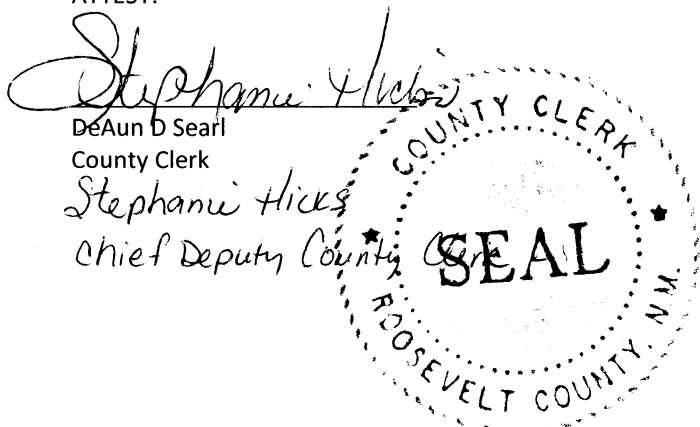 ATTEST:
Stephanie Hicks
DeAun D Searl
County Clerk
Stephanie Hicks
Chief Deputy County Clerk
COUNTY CLERK
SEAL
ROOSEVELT COUNTY, N.M.